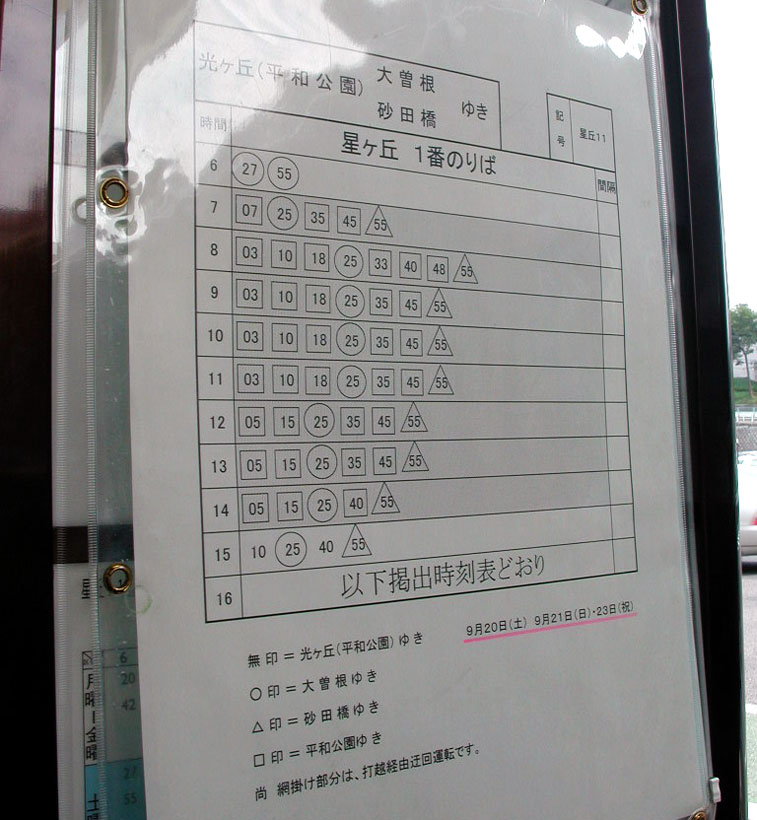 光ヶ丘(平和公園) 大曽根 砂田橋 ゆき
記号 星丘11
時間 星ヶ丘 1番のりば 間隔
6 27 55
7 07 25 35 45 55
8 03 10 18 25 33 40 48 55
9 03 10 18 25 35 45 55
10 03 10 18 25 35 45 55
11 03 10 18 25 35 45 55
12 05 15 25 35 45 55
13 05 15 25 35 45 55
14 05 15 25 40 55
15 10 25 40 55
16 以下掲出時刻表どおり
9月20日(土) 9月21日(日)・23日(祝)
無印=光ヶ丘(平和公園)ゆき
○印=大曽根ゆき
△印=砂田橋ゆき
□印=平和公園ゆき
尚 網掛け部分は、打越経由迂回運転です。
星
6
月曜〜金曜
20
42
土曜
27
55